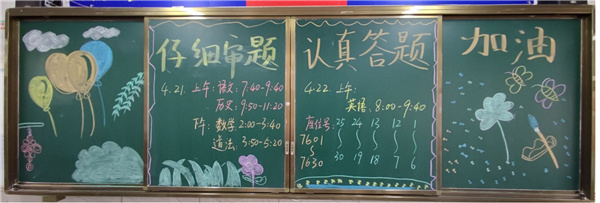 仔细审题
4.21.上午：语文：7:40-9:40
历史：9:50-11:20
下午：数学：2:00-3:40
道法：3:50-5:20
认真答题
4.22.上午：
英语：8:00-9:40
座位号：25 24 13 12 1
7601 ∫ ∫ ∫ ∫ ∫
∫
7630 30 19 18 7 6
加油